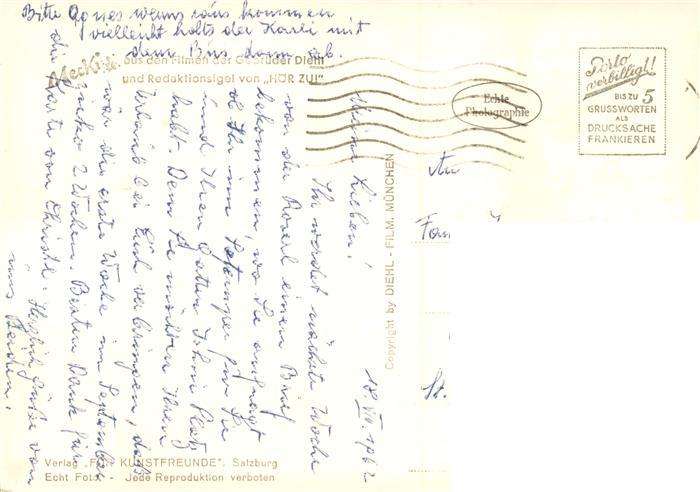 Bitte Agnes wenns raus kommen
vielleicht holts der Karli mit
dem Bus dann ab.
Mecki
aus den Filmen der Gebrüder Diehl
und Redaktionsigel von „HÖR ZU!"
Echte
Photographie
Porto
verbilligt!
BIS ZU 5
GRUSSWORTEN
ALS
DRUCKSACHE
FRANKIEREN
18. VII. 1962
Meine Lieben!
Ihr werdet nächste Woche
von der Roserl einen Brief
bekommen, wo Sie anfragt
ob Ihr im September für Sie
und Ihren Gatten Platz
habt. Denn Sie möchten Ihren
Urlaub bei Euch verbringen, das
wär die erste Woche im September
zirka 2 Wochen. Besten Dank für
die Karte von Christl. Herzliche Grüße von
uns Beiden.
Copyright by DIEHL - FILM, MÜNCHEN
An
Fam
St.
Verlag „FÜR KUNSTFREUNDE", Salzburg
Echt Foto Jede Reproduktion verboten